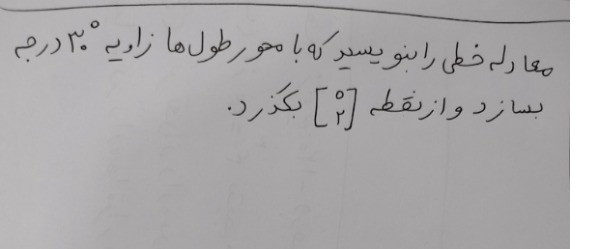 معادله خطی را بنویسید که با محور طول ها زاویه ۳۰° درجه
بسازد و از نقطه [۵ ۲] بگذرد.